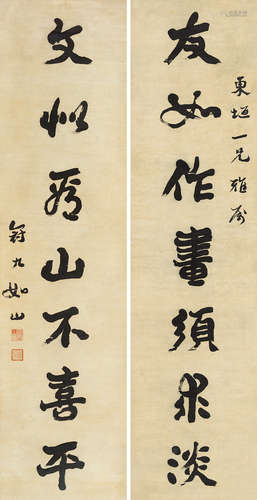 東垣一兄雅屬
友如作畫須求淡
文似看山不喜平
冠九如山